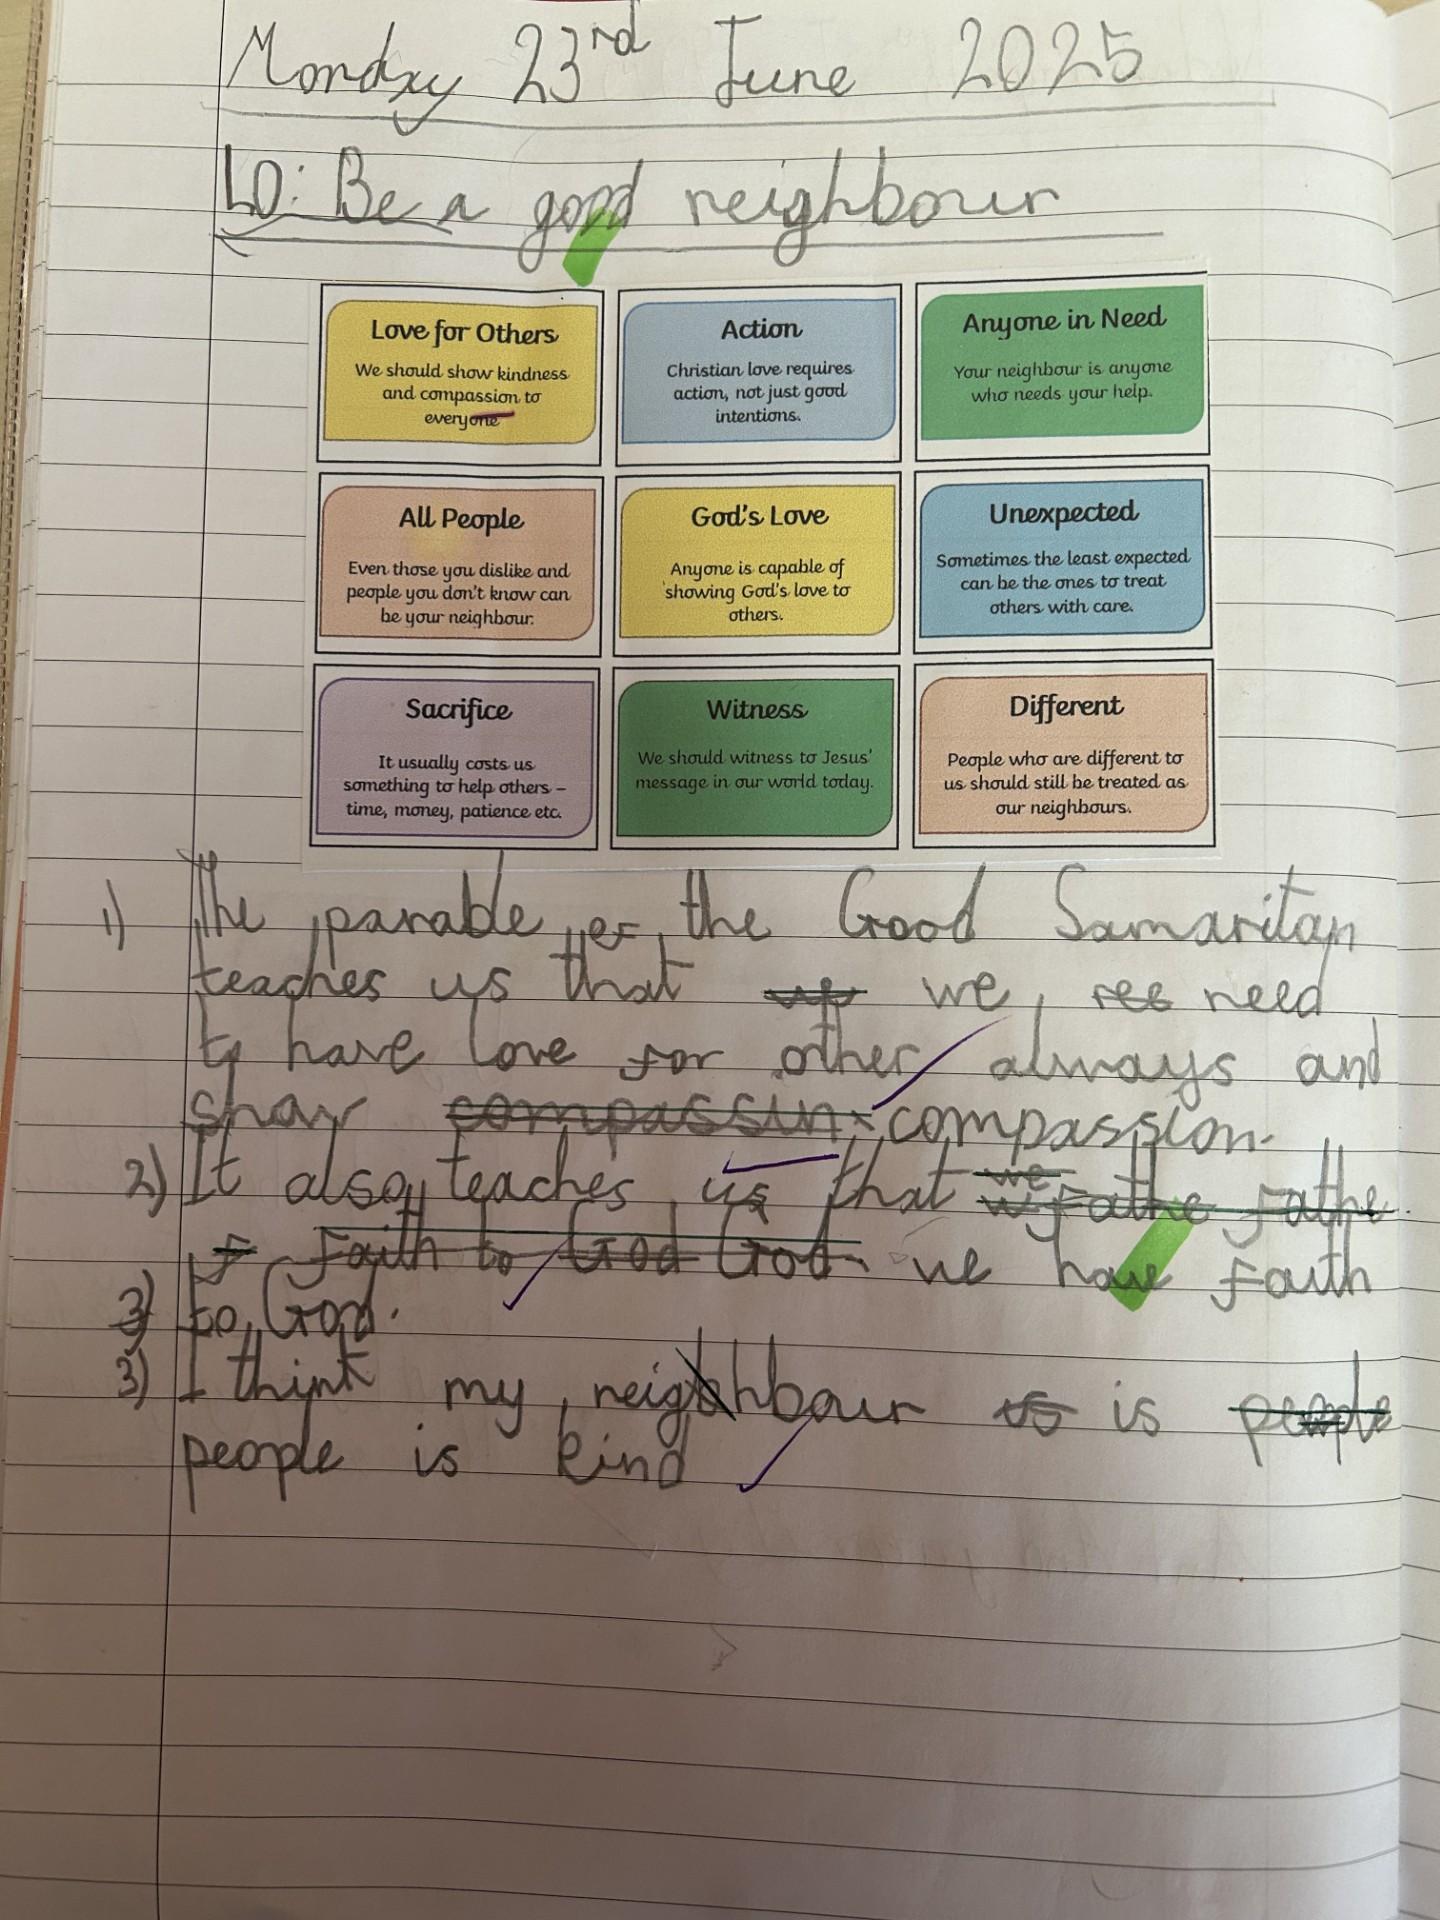 Monday 23rd June 2025
LO: Be a good neighbour
Love for Others
We should show kindness
and compassion to
everyone
Action
Christian love requires
action, not just good
intentions.
Anyone in Need
Your neighbour is anyone
who needs your help.
All People
Even those you dislike and
people you don't know can
be your neighbour.
God's Love
Anyone is capable of
showing God's love to
others.
Unexpected
Sometimes the least expected
can be the ones to treat
others with care.
Sacrifice
It usually costs us
something to help others –
time, money, patience etc.
Witness
We should witness to Jesus'
message in our world today.
Different
People who are different to
us should still be treated as
our neighbours.
1) The parable of the Good Samaritan
teaches us that we need
to have love for other always and
shar compassin compassion.
2) It also teaches us that we fathe fathe
f faith to God God we have faith
3) to God.
3) I think my neighbour is people
people is kind